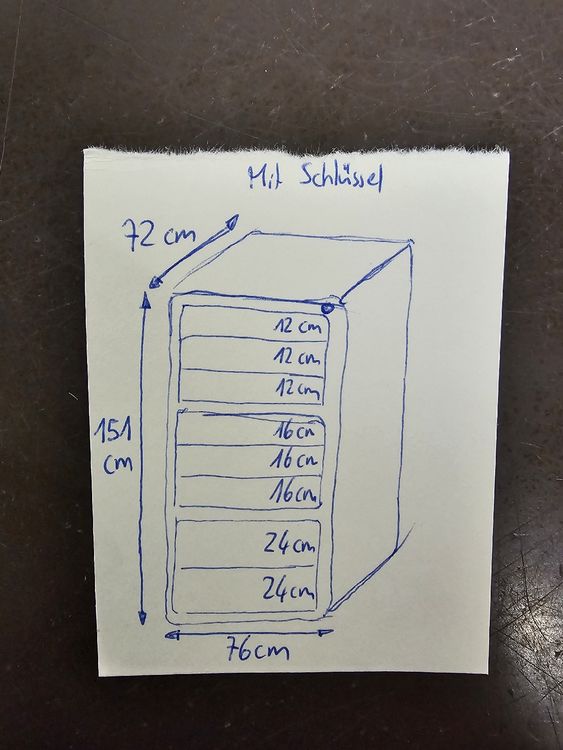 Mit Schlüssel
72 cm
12 cm
12 cm
12 cm
151
cm
16 cm
16 cm
16 cm
24 cm
24 cm
76 cm